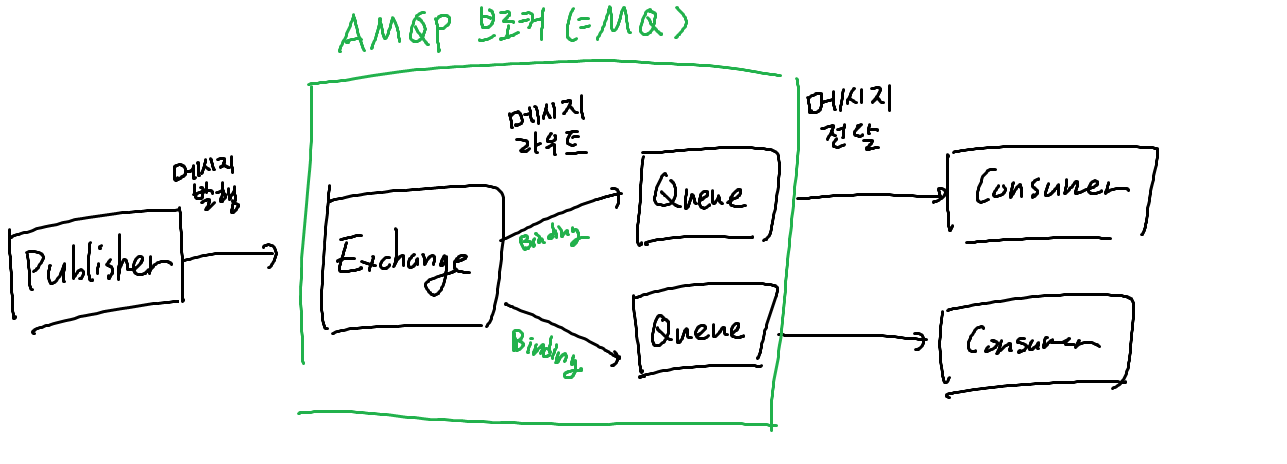 AMQP 브로커 (=MQ)
메시지
발행
Publisher
Exchange
메시지
라우트
Binding
Binding
Queue
Queue
메시지
전달
Consumer
Consumer